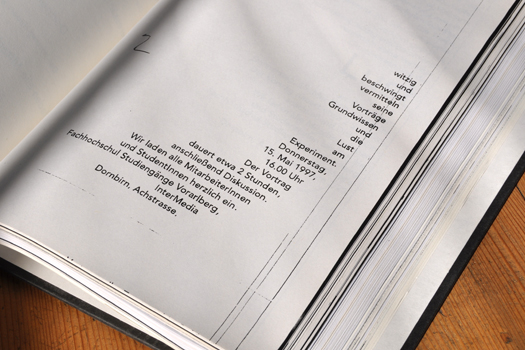 2
witzig
und
beschwingt
vermitteln
seine
Vorträge
Grundwissen
und
die
Lust
am
Experiment.
Donnerstag,
15. Mai 1997,
16.00 Uhr
Der Vortrag
dauert etwa 2 Stunden,
anschließend Diskussion.
Wir laden alle MitarbeiterInnen
und StudentInnen herzlich ein.
Fachhochschul Studiengänge Vorarlberg,
InterMedia
Dornbirn, Achstrasse.